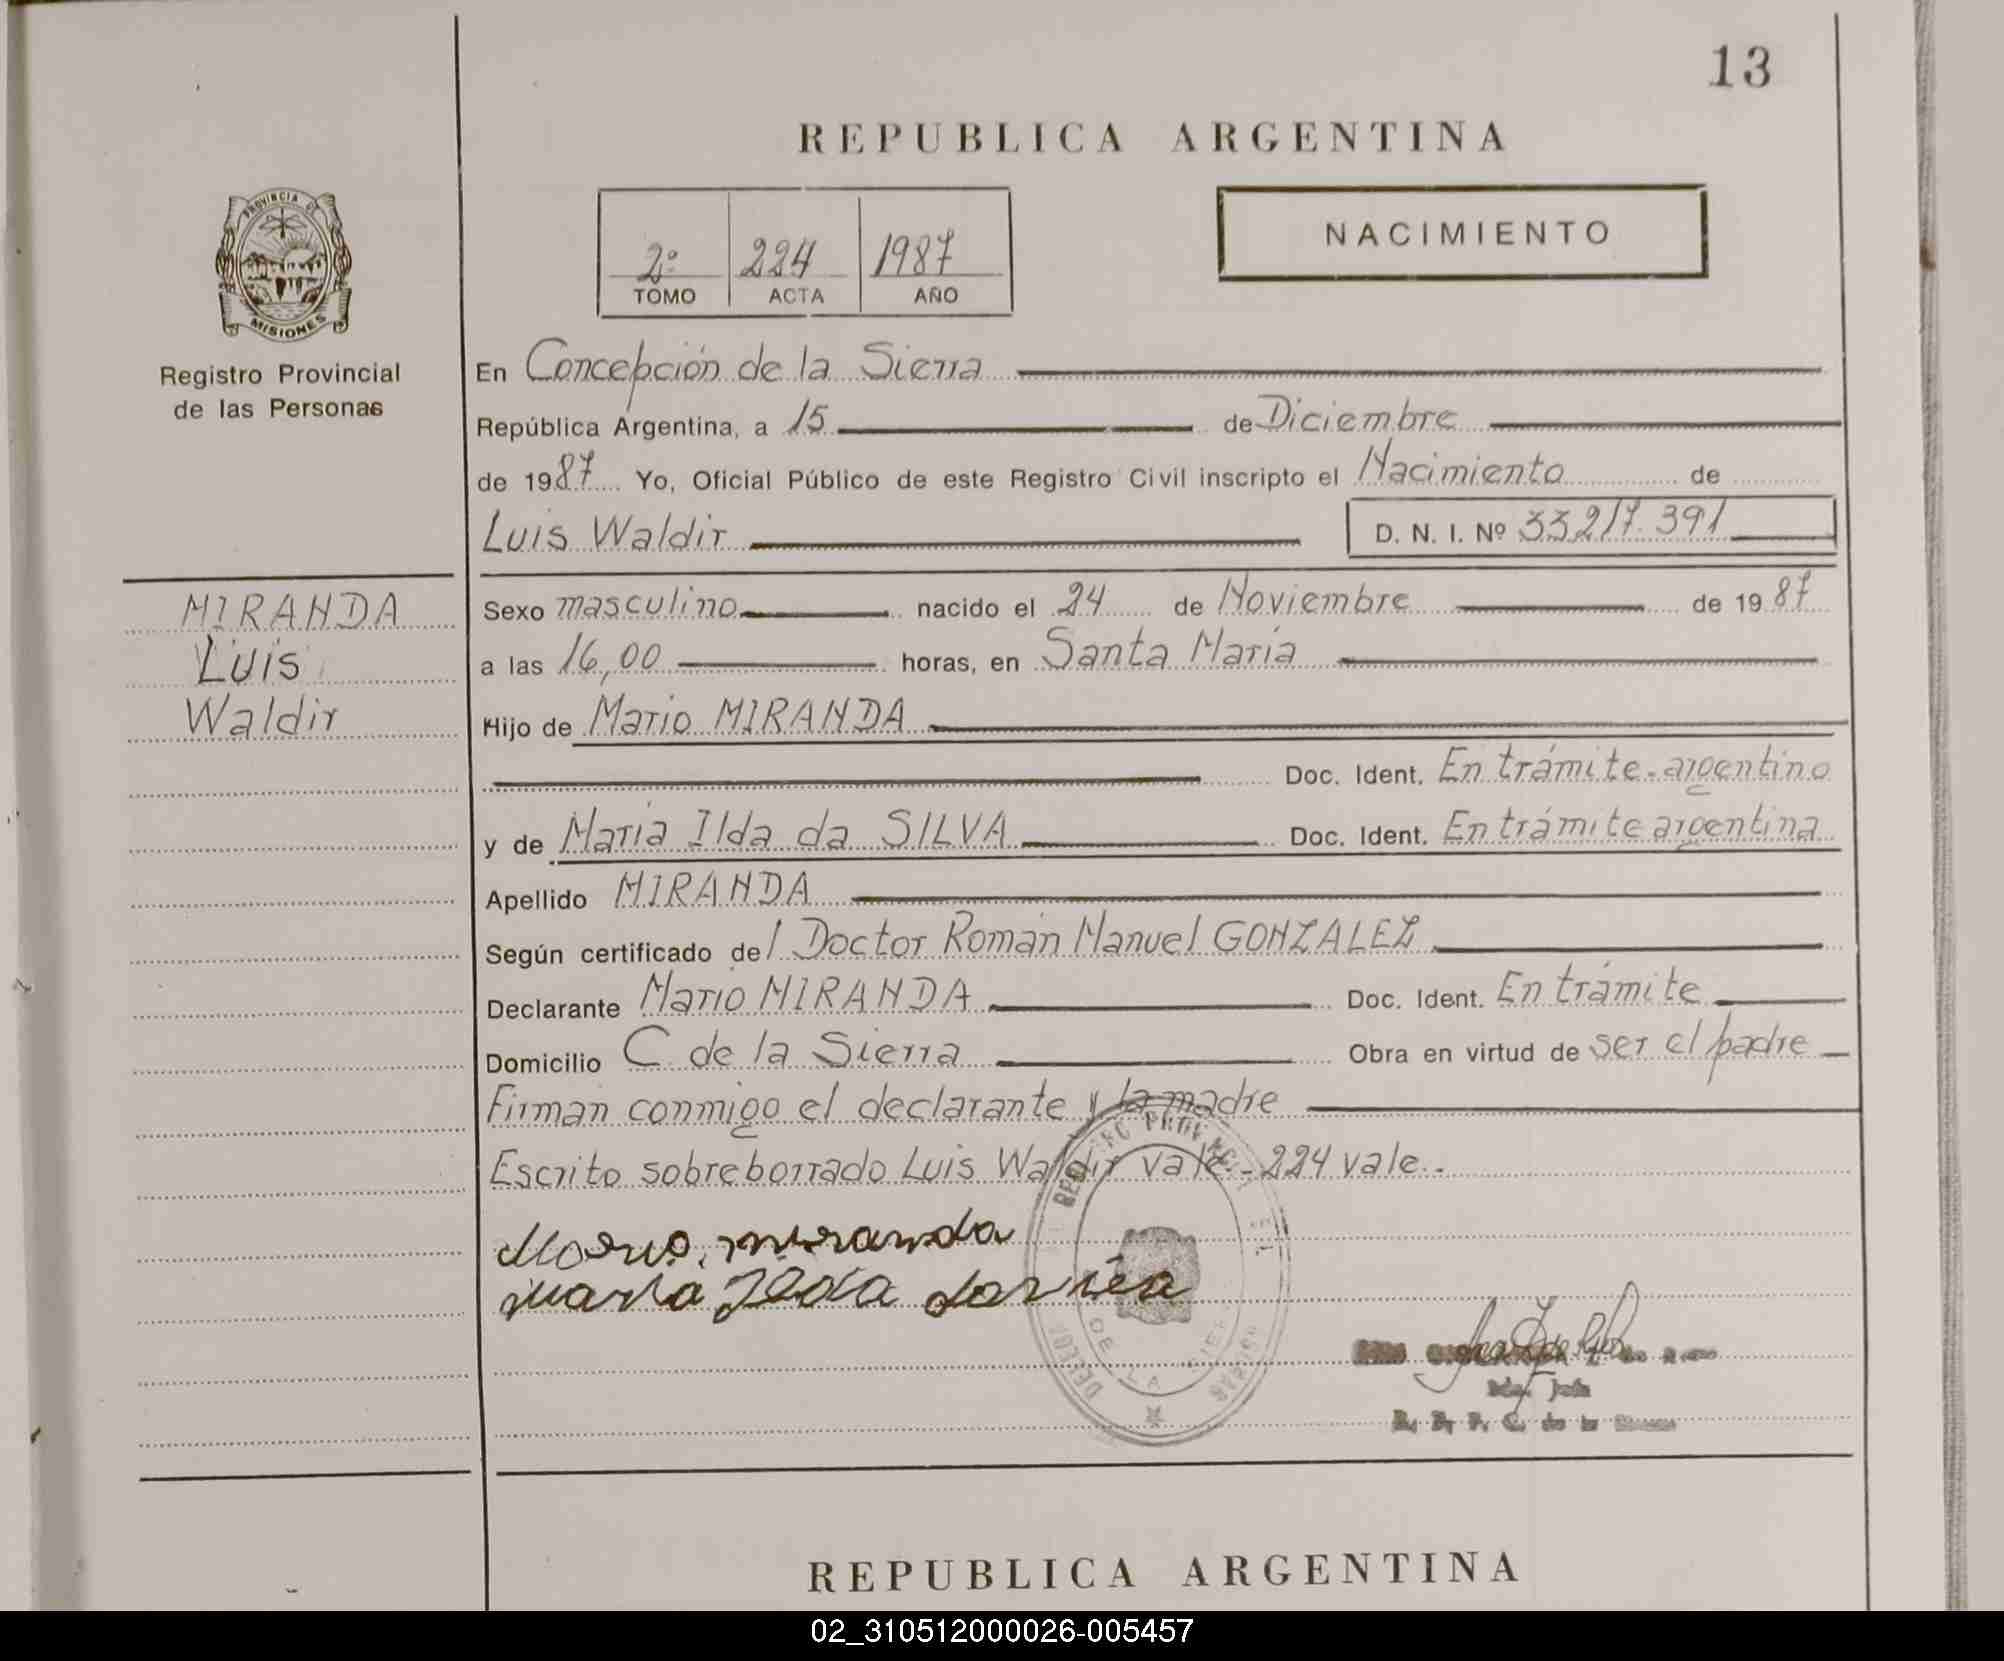 13
REPUBLICA ARGENTINA
PROVINCIA DE
MISIONES
Registro Provincial
de las Personas
2º 224 1987
TOMO ACTA AÑO
NACIMIENTO
En Concepción de la Sierra
República Argentina, a 15 de Diciembre
de 1987 Yo, Oficial Público de este Registro Civil inscripto el Nacimiento de
Luis Waldir D. N. I. Nº 33.217.391
MIRANDA
Luis
Waldir
Sexo masculino nacido el 24 de Noviembre de 1987
a las 16,00 horas, en Santa María
Hijo de Mario MIRANDA
Doc. Ident. En trámite-argentino
y de María Ilda da SILVA Doc. Ident. En trámite argentina
Apellido MIRANDA
Según certificado del Doctor Román Manuel GONZALEZ
Declarante Mario MIRANDA Doc. Ident. En trámite
Domicilio C. de la Sierra Obra en virtud de ser el padre
Firman conmigo el declarante y la madre
Escrito sobreborrado Luis Waldir vale - 224 vale.-
Mario miranda
maria Ilda
DE LA
REPUBLICA ARGENTINA
02_310512000026-005457